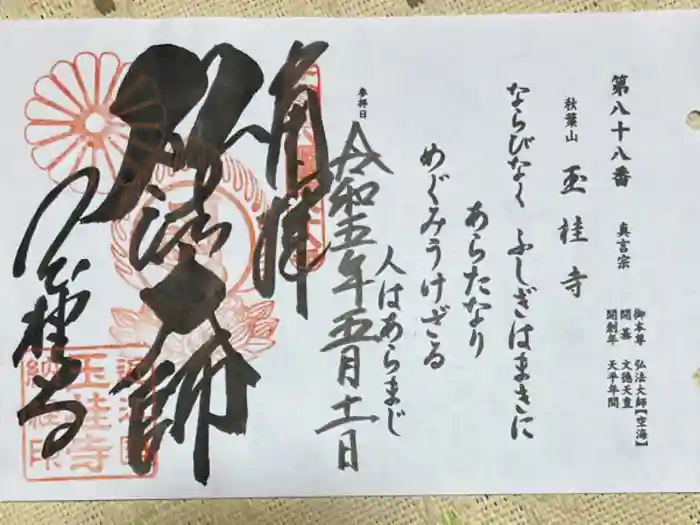 第八十八番 真言宗
御本尊 弘法大師【空海】
開基 文徳天皇
開創年 天平年間
秋葉山 玉桂寺
ならびなく ふしぎはまさに
あらたなり
めぐみうけざる
人はあらまじ
参拝日
令和五年五月十一日
奉拝
弘法大師
玉桂寺
玉桂寺
納経印